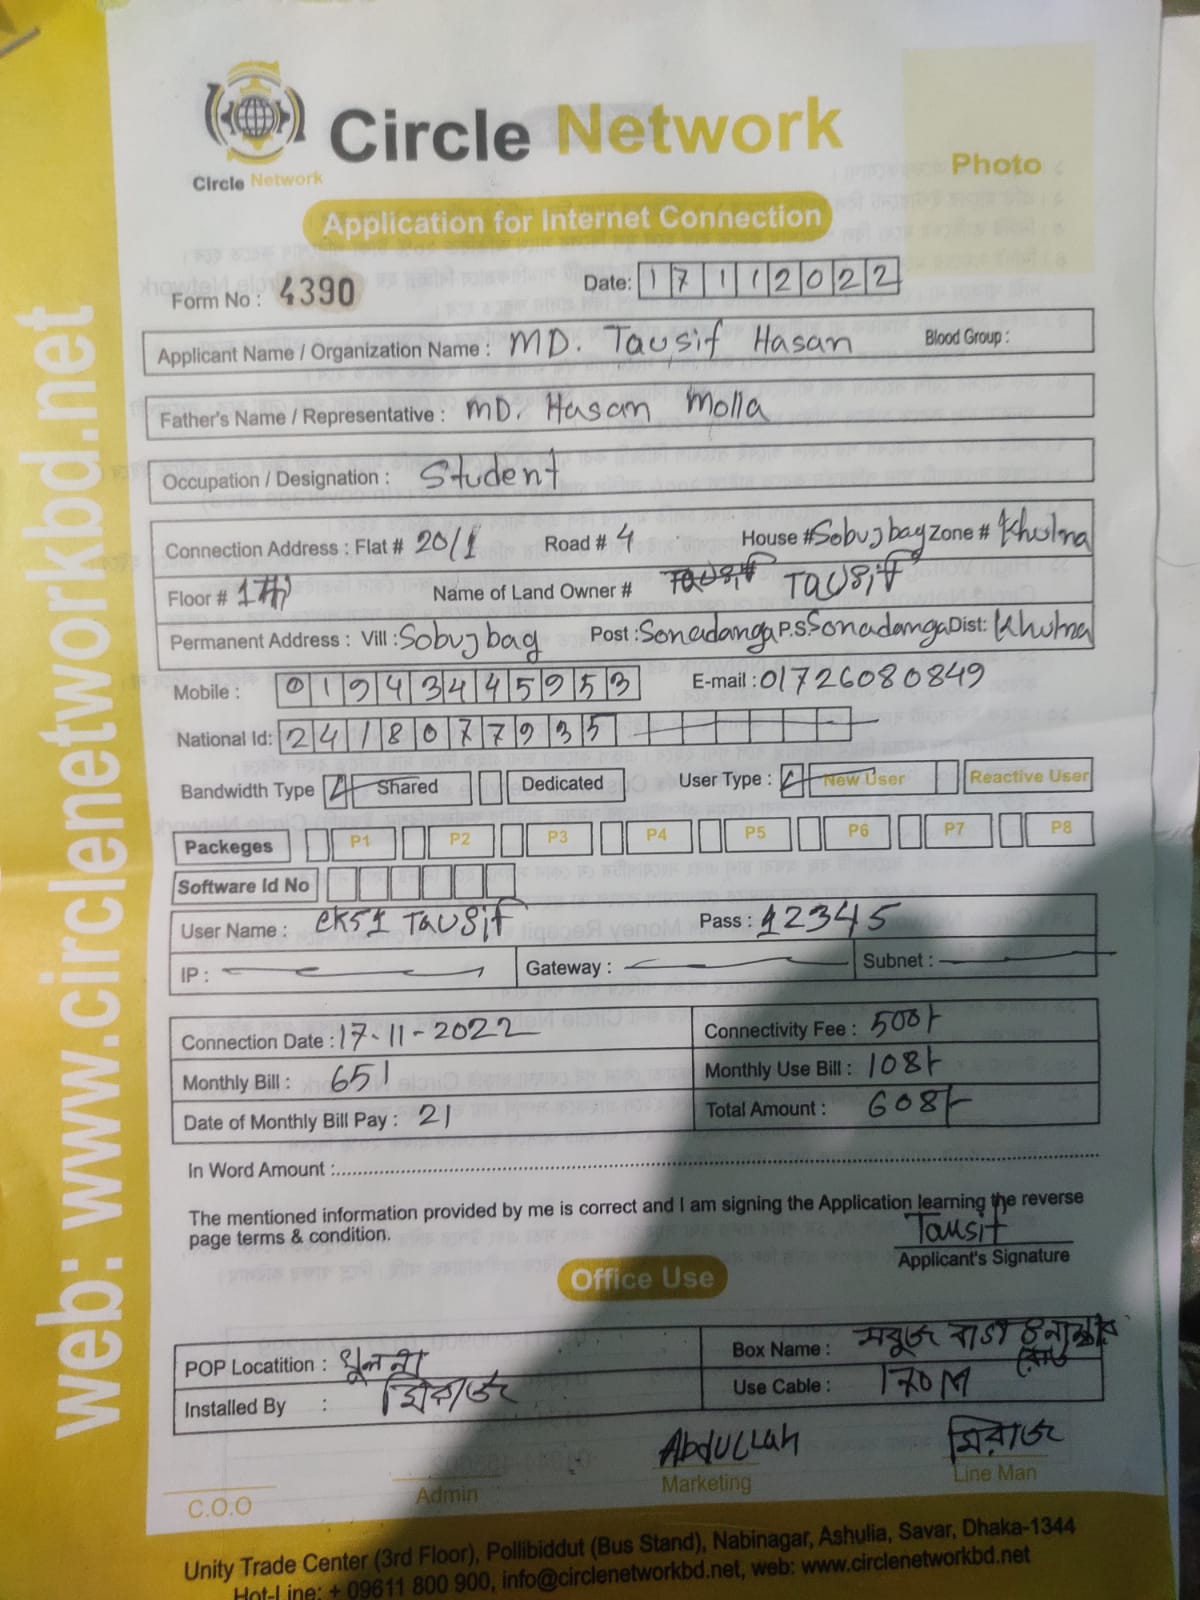 web: www.circlenetworkbd.net
Circle Network
Circle Network
Photo
Application for Internet Connection
Form No : 4390
Date: 17112022
Applicant Name / Organization Name : MD. Tausif Hasan Blood Group :
Father's Name / Representative : MD. Hasan Molla
Occupation / Designation : Student
Connection Address : Flat # 20/1 Road # 4 House # Sobujbag Zone # Khulna
Floor # Name of Land Owner # Tausif
Permanent Address : Vill : Sobujbag Post : Sonadanga P.S: Sonadanga Dist: Khulna
Mobile : 01943445953 E-mail : 01726080849
National Id: 2418077935
Bandwidth Type Shared Dedicated User Type : New User Reactive User
Packeges P1 P2 P3 P4 P5 P6 P7 P8
Software Id No
User Name : Tausif Pass : 12345
IP : Gateway : Subnet :
Connection Date : 17-11-2022 Connectivity Fee : 500/-
Monthly Bill : 651 Monthly Use Bill : 108/-
Date of Monthly Bill Pay : 21 Total Amount : 608/-
In Word Amount :
The mentioned information provided by me is correct and I am signing the Application learning the reverse
page terms & condition.
Tausif
Applicant's Signature
Office Use
POP Locatition : খুলনা Box Name : সবুজ বাগ
Installed By : মিরাজ Use Cable : 170M
Abdullah মিরাজ
C.O.O Admin Marketing Line Man
Unity Trade Center (3rd Floor), Pollibiddut (Bus Stand), Nabinagar, Ashulia, Savar, Dhaka-1344
Hot-Line: + 09611 800 900, info@circlenetworkbd.net, web: www.circlenetworkbd.net